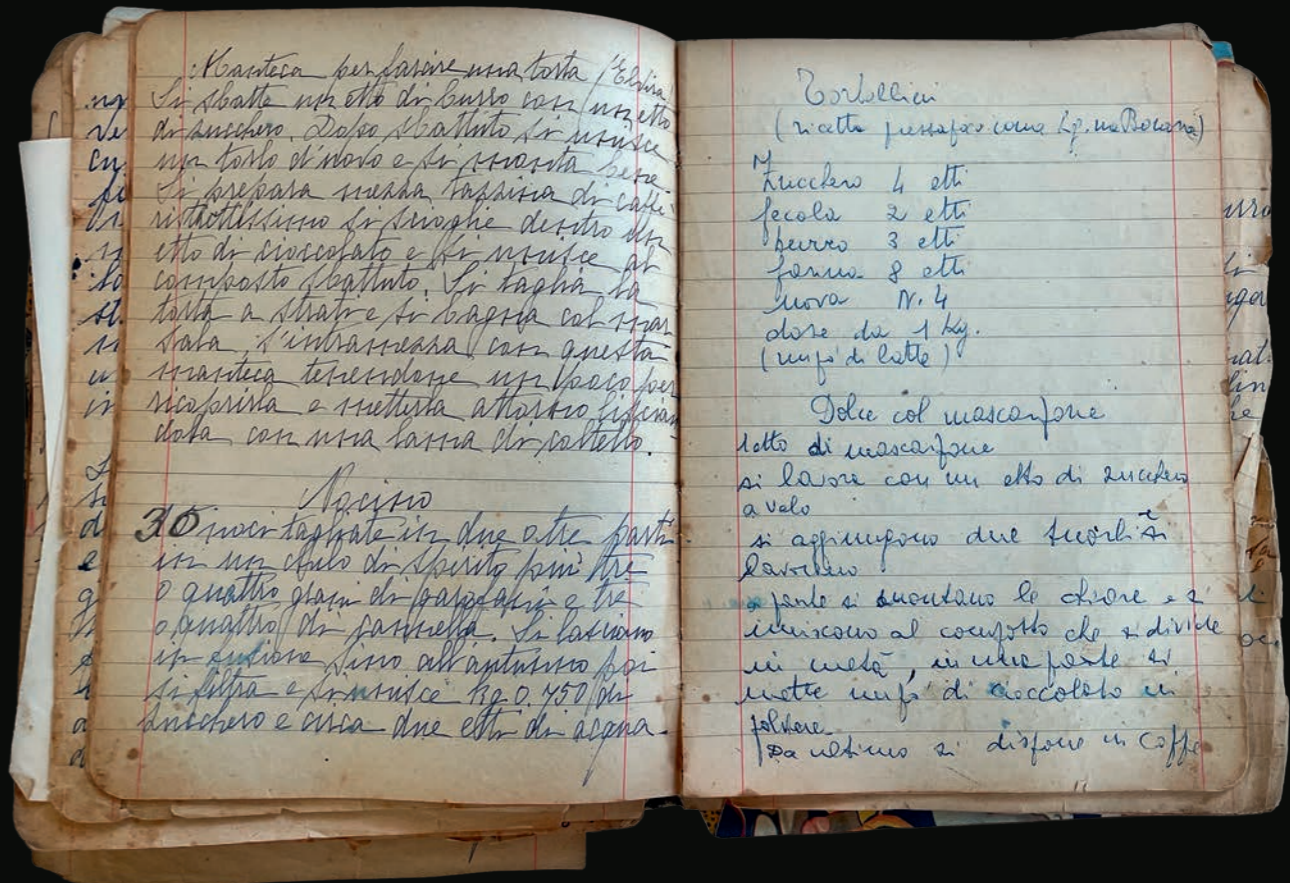 Manteca per farcire una torta (Elvira
Si sbatte un etto di burro con un etto
di zucchero. Dopo sbattuto si unisce
un torlo d'uovo e si monta bene.
Si prepara mezza tazzina di caffè
ristrettissimo si scioglie dentro un
etto di cioccolato e si unisce al
composto sbattuto. Si taglia la
torta a strati e si bagna col mar
sala, s'intramezza con questa
manteca tenendone un poco per
ricoprirla e metterla attorno liscian
dola con una lama di coltello.
Nocino
30 noci tagliate in due o tre parti
in un chilo di spirito più tre
o quattro grani di garofani e tre
o quattro di cannella. Si lasciano
in infusione sino all'autunno poi
si filtra e si unisce Kg 0.750 di
zucchero e circa due etti di acqua.
Tortellini
(ricetta
Zucchero 4 etti
fecola 2 etti
burro 3 etti
farina 8 etti
uova N. 4
dose da 1 Kg.
(un pò di latte)
Dolce col mascarpone
1 etto di mascarpone
si lavora con un etto di zucchero
a velo
si aggiungono due tuorli e si
lavorano
a parte si montano le chiare e si
uniscono al composto che si divide
in metà, in una parte si
mette un pò di cioccolato in
polvere
Da ultimo si dispone in coppe